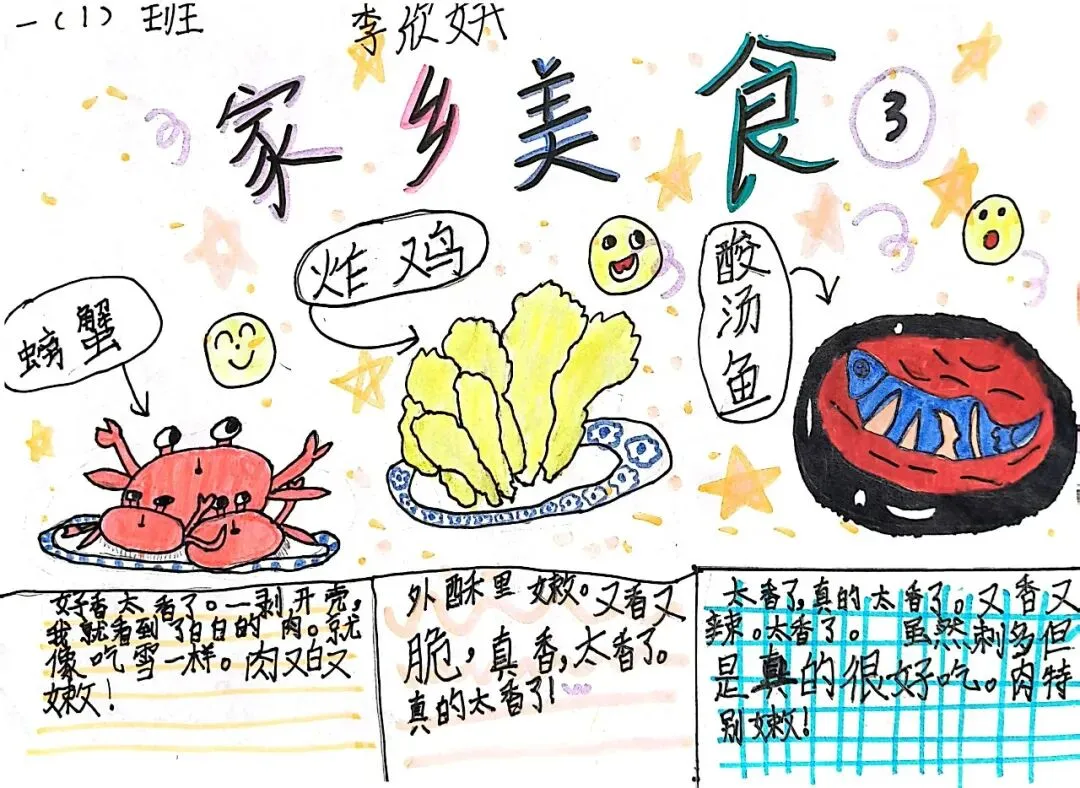 一(1)班
李欣妍
家乡美食
3
螃蟹
炸鸡
酸汤鱼
好香太香了。一剥,开壳,
我就看到了白白的肉。就
像吃雪一样。肉又白又
嫩!
外酥里嫩。又香又
脆,真香,太香了。
真的太香了!
太香了,真的太香了。又香又
辣。太香了。虽然刺多但
是真的很好吃。肉特
别嫩!